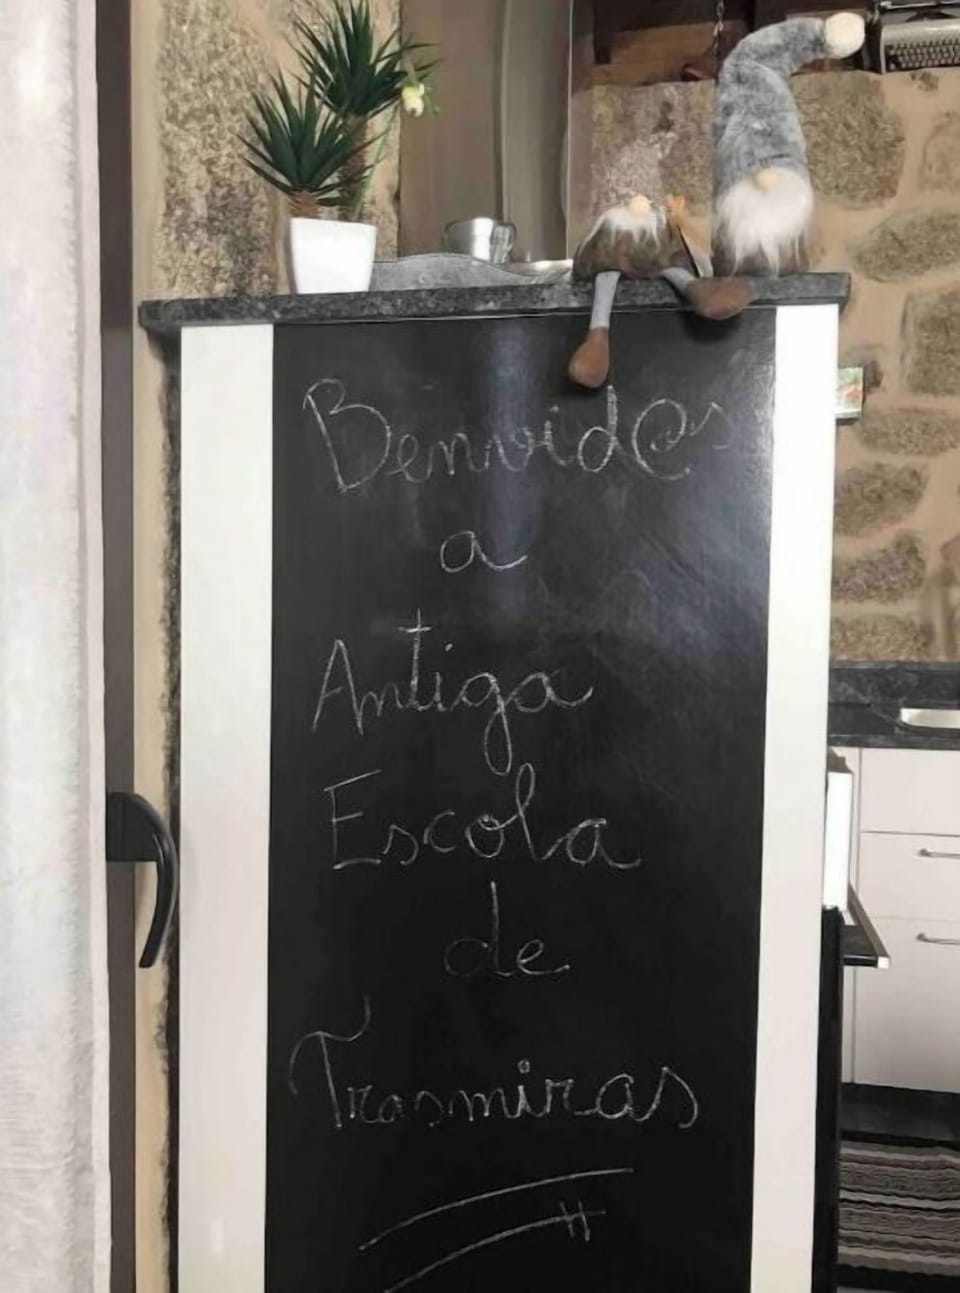 Benvid@s
a
Antiga
Escola
de
Trasmiras